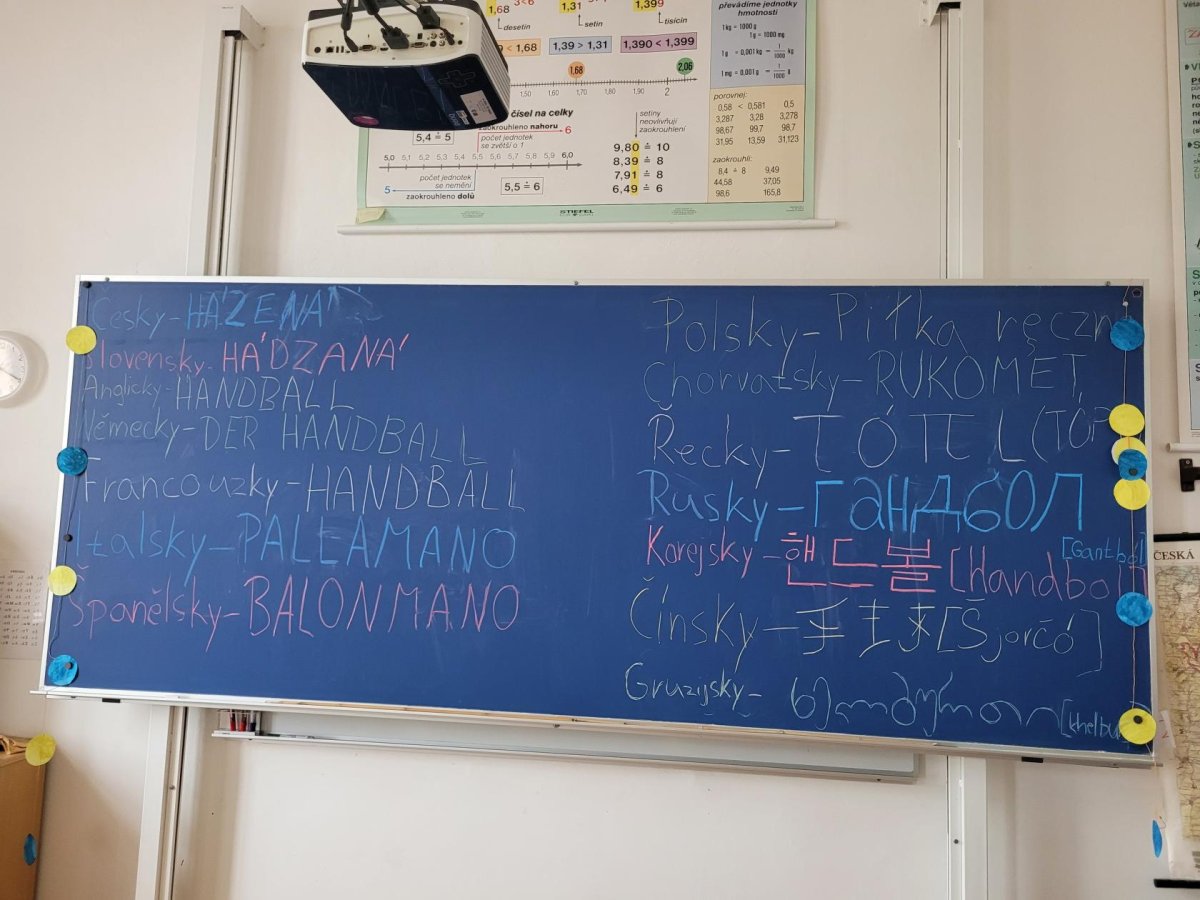 1,68 3<6
desetin
1,31
setin
1,399
tisícin
< 1,68
1,39 > 1,31
1,390 < 1,399
převádíme jednotky
hmotnosti
1 kg = 1000 g
1 g = 1000 mg
1 g = 0,001 kg = 1/1000 kg
1 mg = 0,001 g = 1/1000 g
1,68
2,06
1,50 1,60 1,70 1,80 1,90 2
čísel na celky
zaokrouhleno nahoru 6
5,4 ≐ 5
počet jednotek
se zvětší o 1
5,0 5,1 5,2 5,3 5,4 5,5 5,6 5,7 5,8 5,9 6,0
počet jednotek
se nemění
5
zaokrouhleno dolů
5,5 ≐ 6
setiny
neovlivňují
zaokrouhlení
9,80 ≐ 10
8,39 ≐ 8
7,91 ≐ 8
6,49 ≐ 6
porovnej:
0,58 < 0,581 0,5
3,287 3,28 3,278
98,67 99,7 98,7
31,95 13,59 31,123
zaokrouhli:
8,4 ≐ 8 9,49
44,58 37,05
98,6 165,8
STIEFEL
Česky - HÁZENÁ
Slovensky - HÁDZANÁ
Anglicky - HANDBALL
Německy - DER HANDBALL
Francouzky - HANDBALL
Italsky - PALLAMANO
Španělsky - BALONMANO
Polsky - Piłka ręczn
Chorvatsky - RUKOMET
Řecky - TÓΠL (TÓP
Rusky - гандбол
[Gantbol]
Korejsky - 핸드볼 [Handbol]
Čínsky - 手球 [Šjorčó]
Gruzijsky -
[khelbu
ČESKÁ